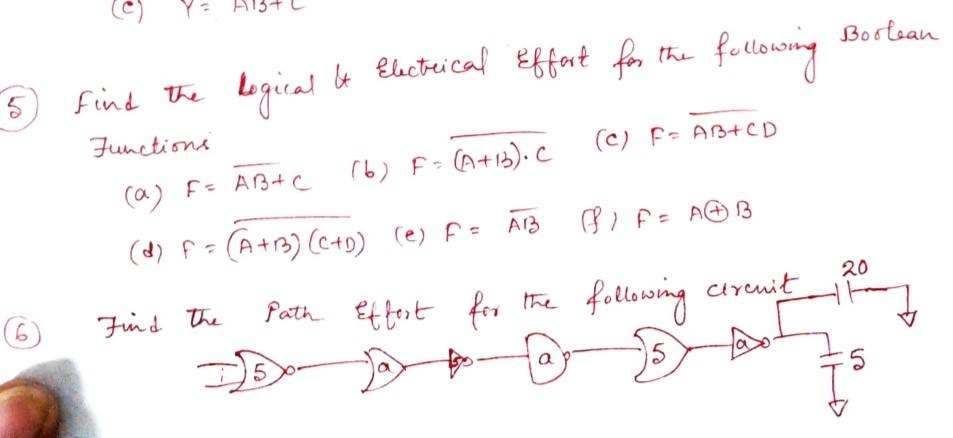 (c) Y = AB+C
5 Find the Logical & Electrical Effort for the following Boolean
Functions
(a) F = A̅B̅+̅C̅ (b) F = (̅A̅+̅B̅)̅.̅C̅ (c) F = A̅B̅+̅C̅D̅
(d) F = (̅A̅+̅B̅)̅(̅C̅+̅D̅)̅ (e) F = A̅B̅ (f) F = A⊕B
6 Find the Path Effort for the following circuit
20
5 a a 5 a 5